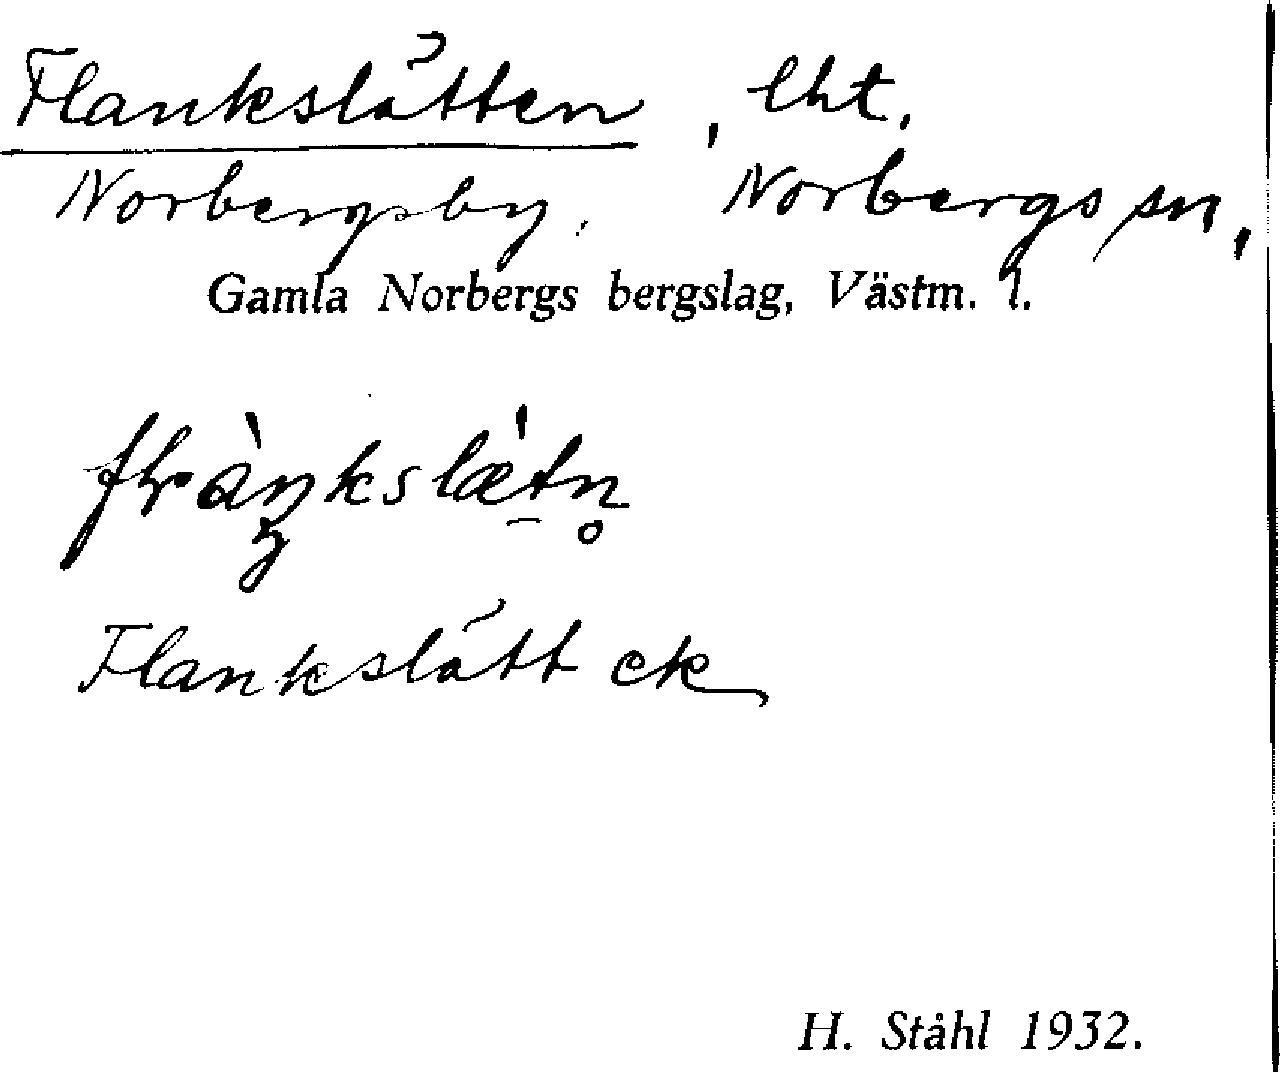 Flankslåtten, lht.
Norbergsby. Norbergs sn,
Gamla Norbergs bergslag, Västm. l.
Flankslått ek
H. Ståhl 1932.